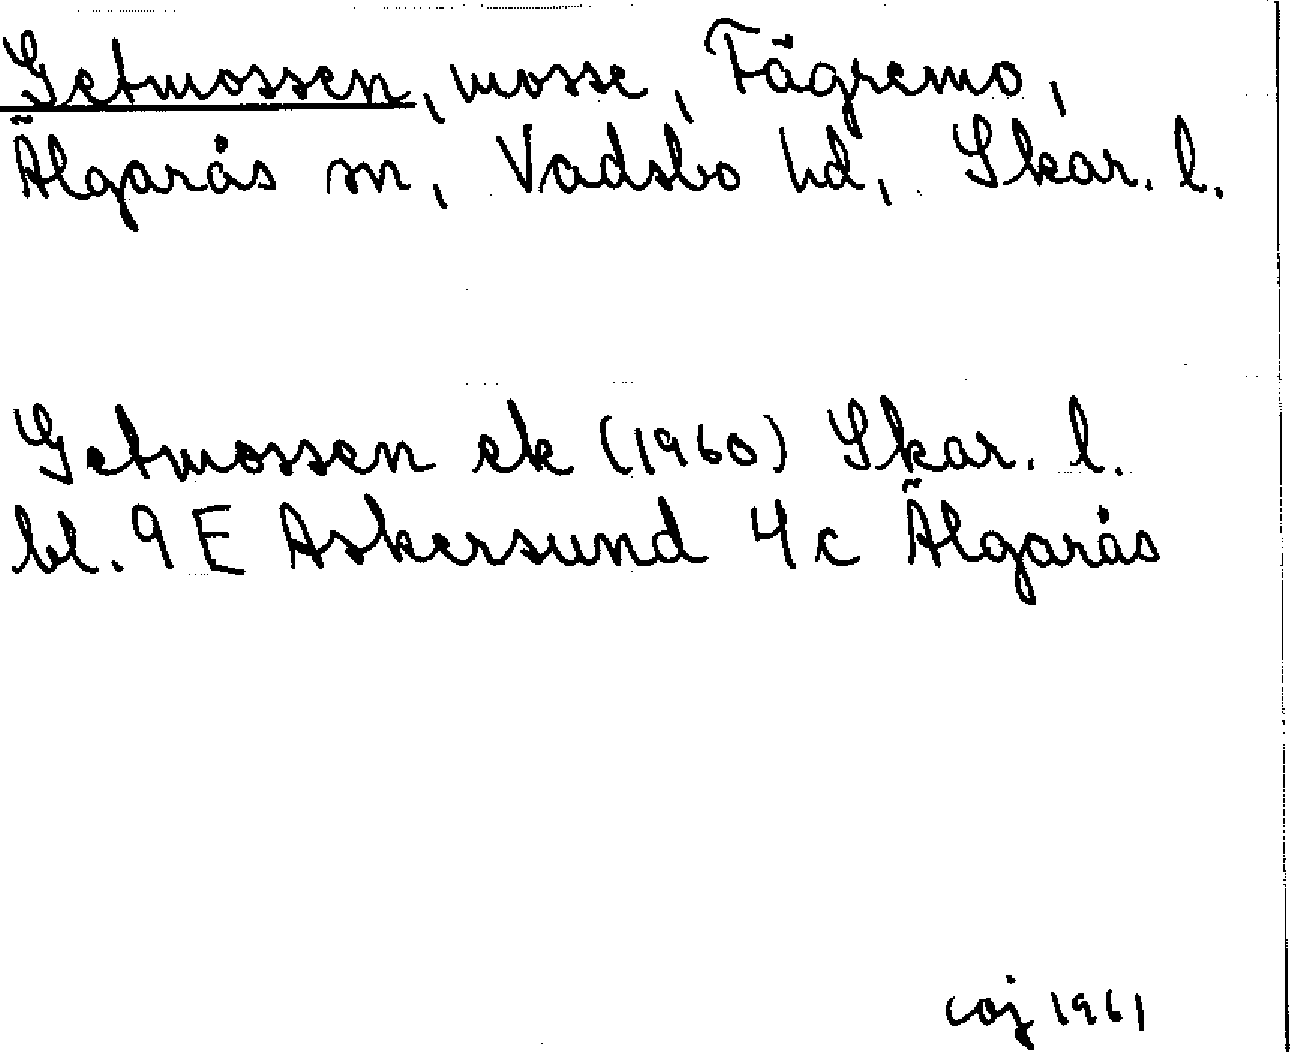 Getmossen, mosse, Fägremo,
Älgarås sn, Vadsbo hd, Skar. l.
Getmossen ek (1960) Skar. l.
bl. 9 E Askersund 4 c Älgarås
coj 1961